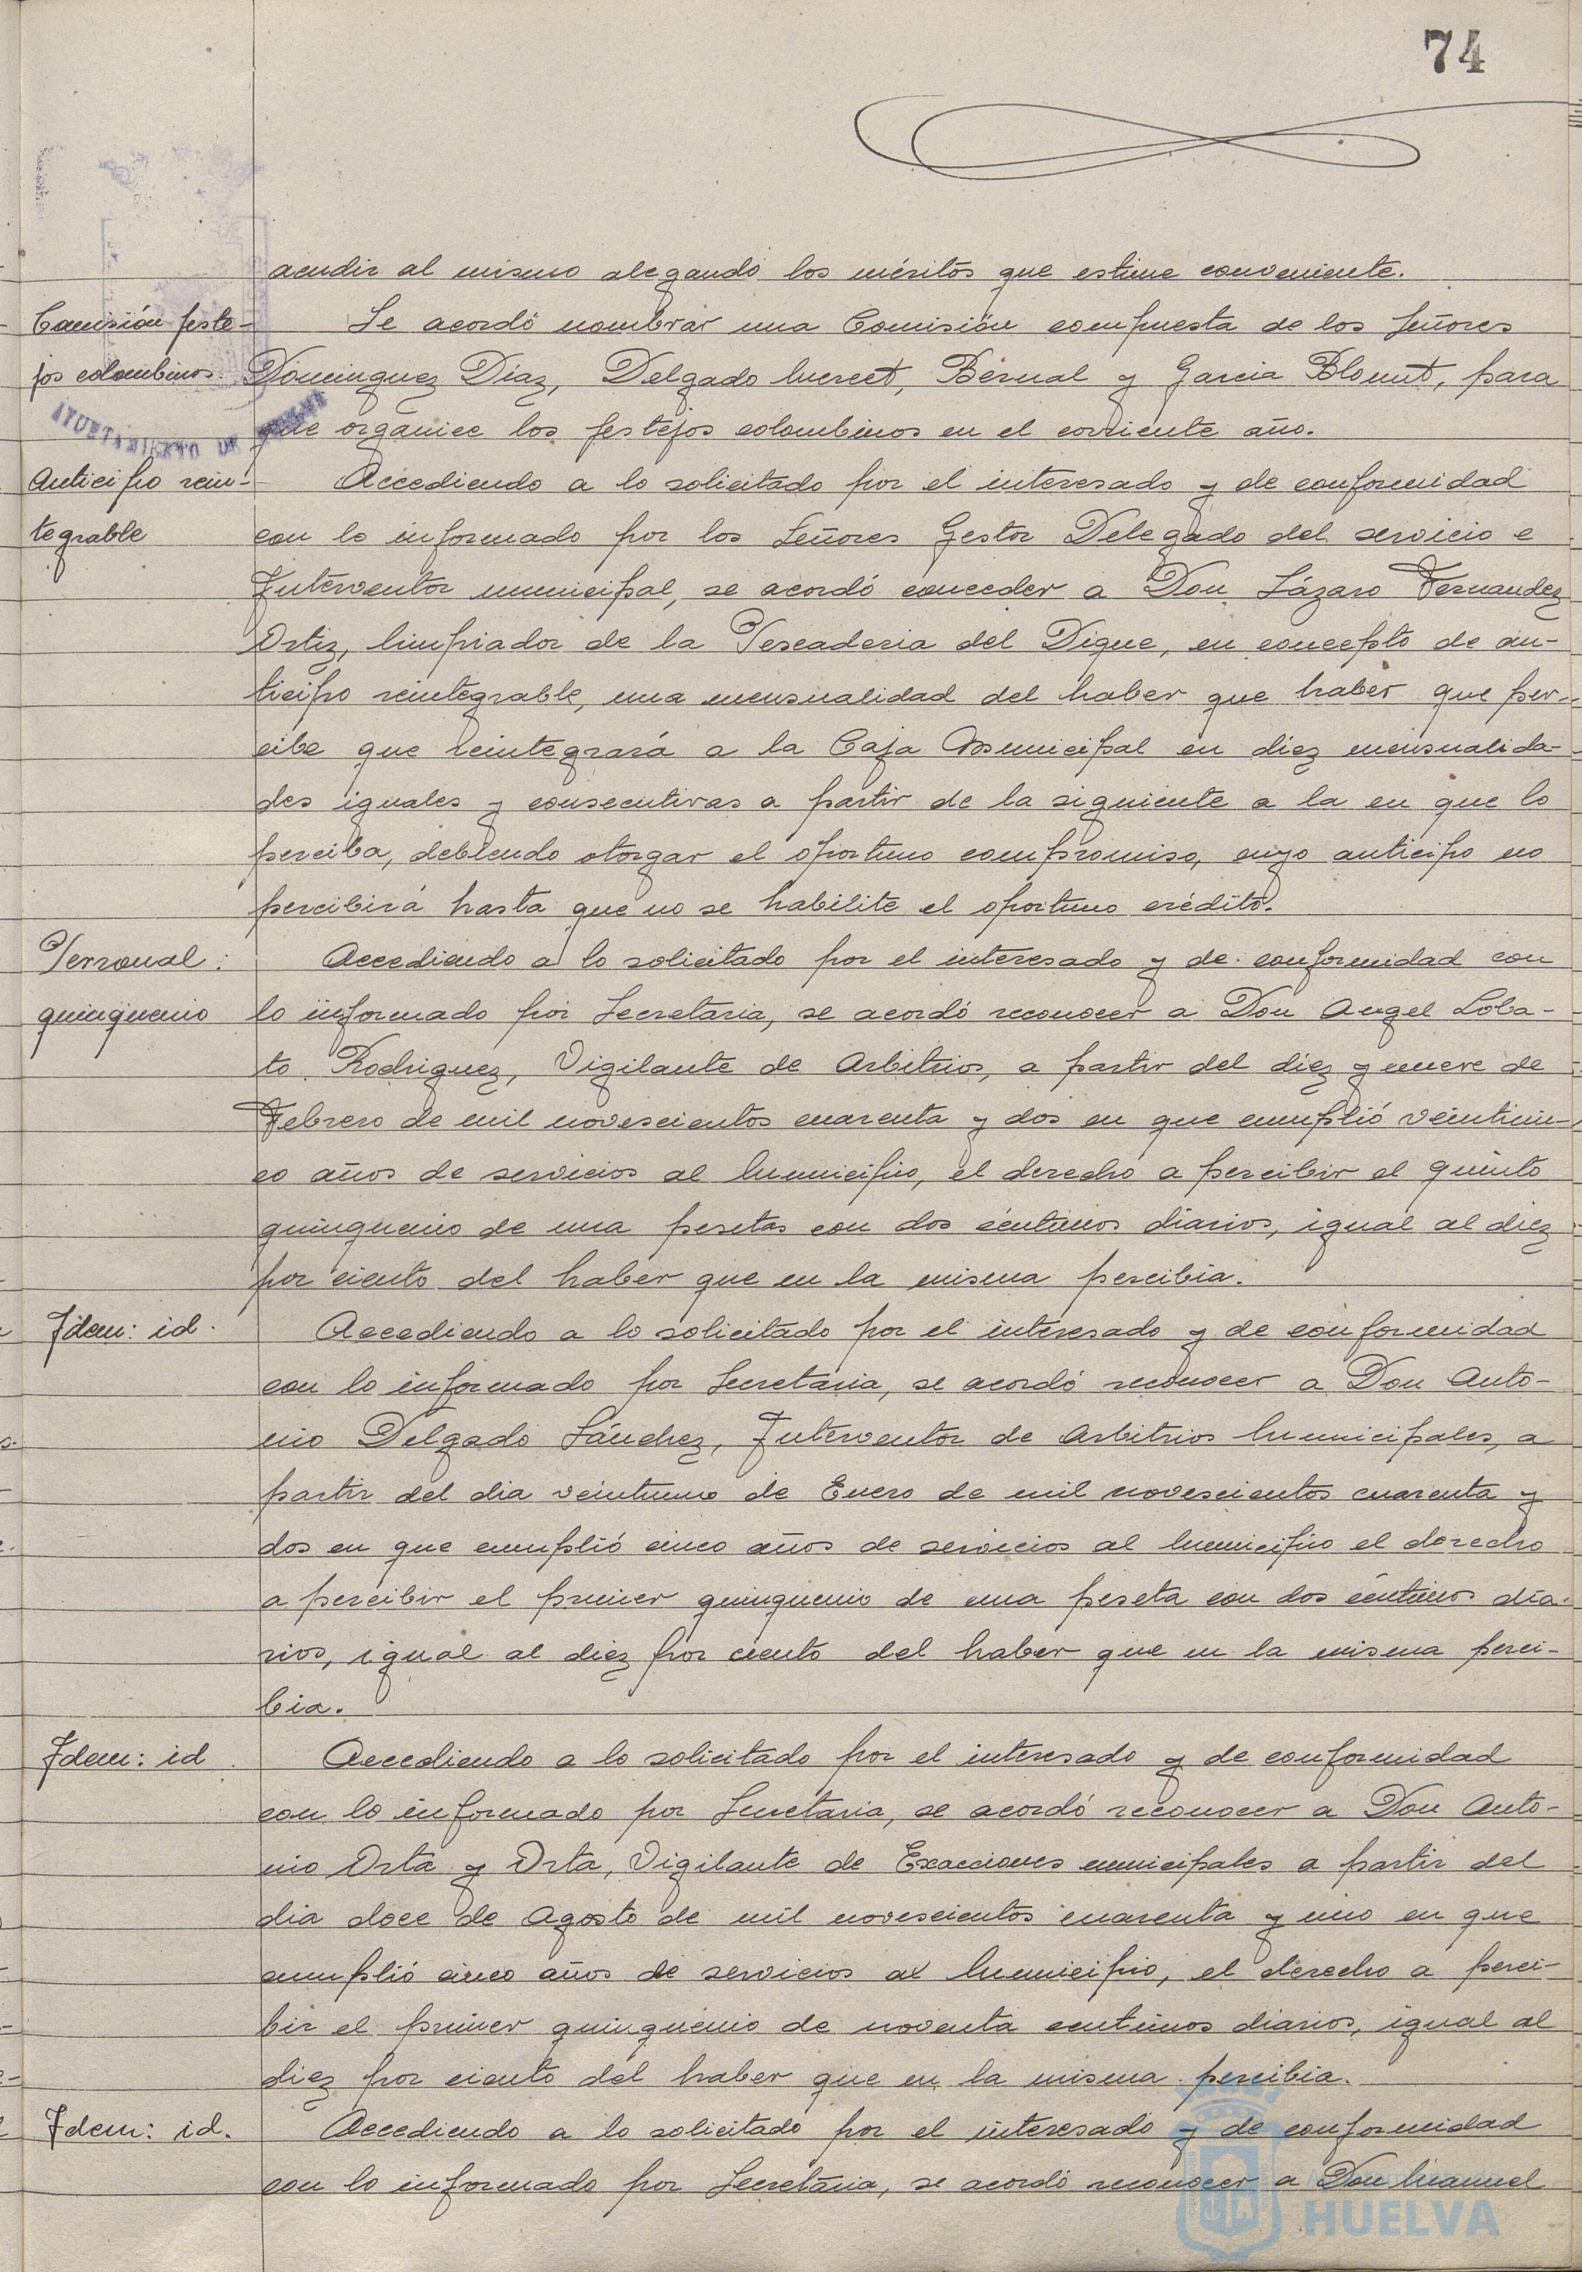 74
acudir al mismo alegando los méritos que estime conveniente.
Comisión feste-
jos colombinos.
Se acordó nombrar una Comisión compuesta de los Señores
Dominguez Diaz, Delgado Mercet, Bernal y Garcia Blomet, para
que organice los festejos colombinos en el corriente año.
AYUNTAMIENTO DE
Anticipo rein-
tegrable
Accediendo a lo solicitado por el interesado y de conformidad
con lo informado por los Señores Gestor Delegado del servicio e
Interventor municipal, se acordó conceder a Don Lázaro Fernandez
Ortiz, limpiador de la Pescaderia del Dique, en concepto de an-
ticipo reintegrable, una mensualidad del haber que haber que per-
cibe que reintegrará a la Caja Municipal en diez mensualida-
des iguales y consecutivas a partir de la siguiente a la en que lo
perciba, debiendo otorgar el oportuno compromiso, cuyo anticipo no
percibirá hasta que no se habilite el oportuno crédito.
Personal:
quinquenio
Accediendo a lo solicitado por el interesado y de conformidad con
lo informado por Secretaria, se acordó reconocer a Don Angel Loba-
to Rodriguez, Vigilante de Arbitrios, a partir del diez y nueve de
Febrero de mil novescientos cuarenta y dos en que cumplió veinticin-
co años de servicios al Municipio, el derecho a percibir el quinto
quinquenio de una pesetas con dos céntimos diarios, igual al diez
por ciento del haber que en la misma percibia.
Idem: id.
Accediendo a lo solicitado por el interesado y de conformidad
con lo informado por Secretaria, se acordó reconocer a Don Anto-
nio Delgado Sánchez, Interventor de Arbitrios Municipales, a
partir del dia veintiuno de Enero de mil novescientos cuarenta y
dos en que cumplió cinco años de servicios al Municipio el derecho
a percibir el primer quinquenio de una peseta con dos céntimos dia-
rios, igual al diez por ciento del haber que en la misma perci-
bia.
Idem: id
Accediendo a lo solicitado por el interesado y de conformidad
con lo informado por Secretaria, se acordó reconocer a Don Anto-
nio Orta y Orta, Vigilante de Exacciones municipales a partir del
dia doce de Agosto de mil novescientos cuarenta y uno en que
cumplió cinco años de servicios al Municipio, el derecho a perci-
bir el primer quinquenio de noventa centimos diarios, igual al
diez por ciento del haber que en la misma percibia.
Idem: id.
Accediendo a lo solicitado por el interesado y de conformidad
con lo informado por Secretaria, se acordó reconocer a Don Manuel
HUELVA